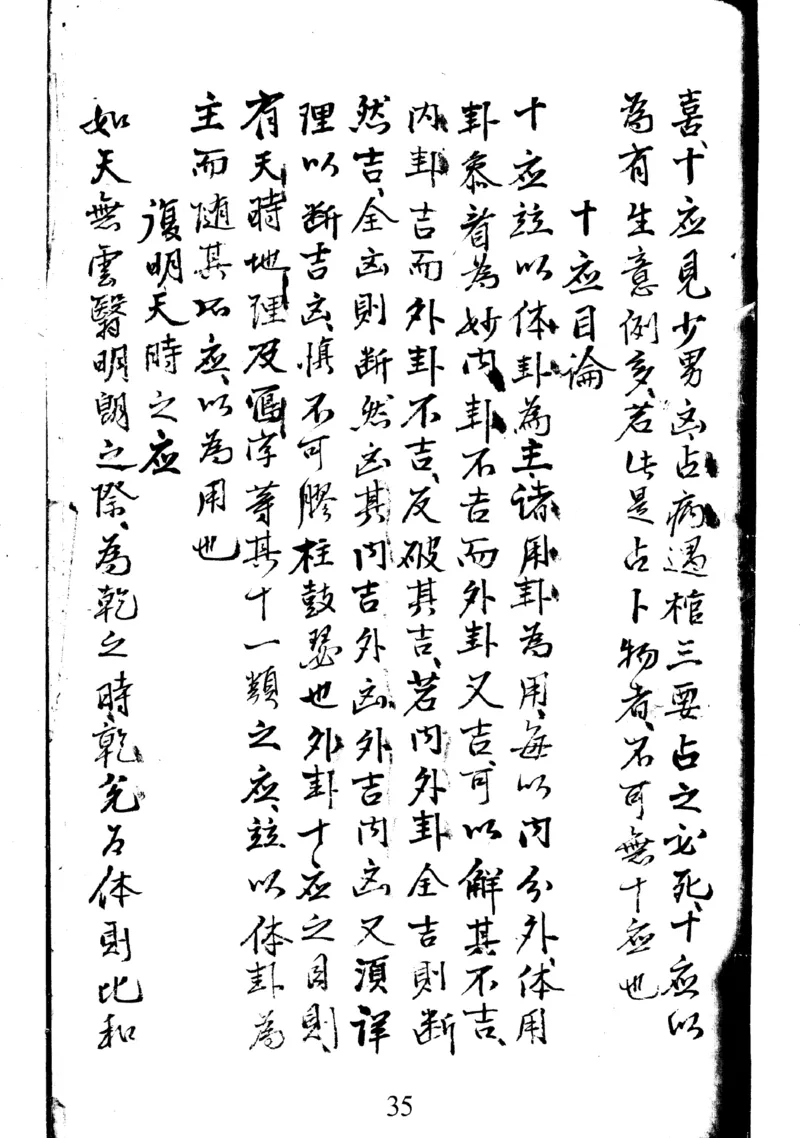 喜、十应見少男凶、占病遇棺三要占之必死、十应以
為有生意例多、若此是占卜物者、不可無十应也
十应目論
十应玆以体卦為主、諸用卦為用、每以内分外、体用
卦叅看為妙、内卦不吉而外卦又吉、可以解其不吉、
内卦吉而外卦不吉、反破其吉、若内外卦全吉則断
然吉、全凶則断然凶、其内吉外凶、外吉内凶、又須詳
理以断吉凶、慎不可膠柱鼓瑟也外卦十应之目則、
有天時地理及寫字等其十一類之应、玆以体卦為
主而随其所应、以為用也
復明天時之应
如天無雲翳明朗之際、為乾之時、乾兑為体則比和
35